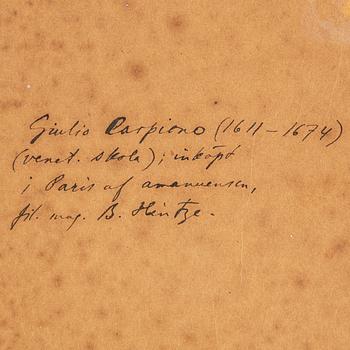 Giulio Carpiono (1611-1674)
(venet. skola); inköpt
i Paris af amanuensen,
fil. mag. B. Hintze.